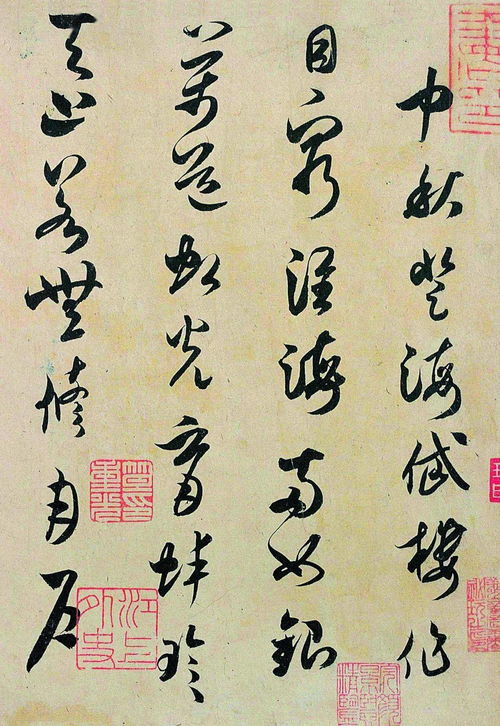 中秋登海岱樓作
目窮淮海兩如銀
萬道虹光育蚌珍
天上若無修月戶
江上外史